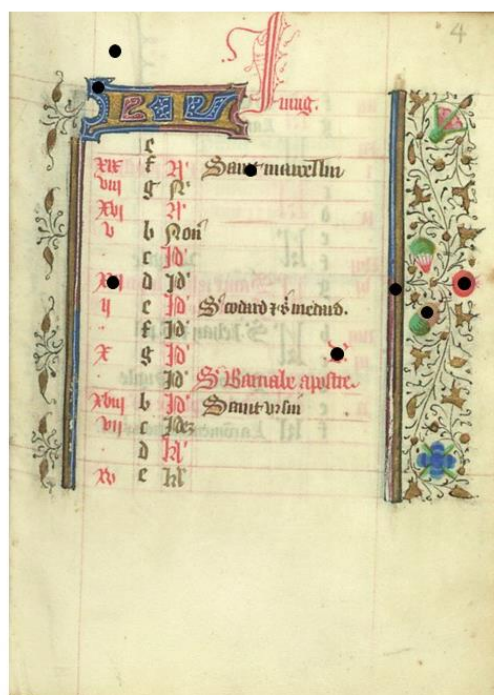 4
Juing.
e
xix f N' Sainct marcellin
viii g N'
xvi N'
v b Non'
c Id'
d Id'
ii e Id' S' godard & s' medard.
f Id'
x g Id'
Id' S' Barnabe apostre.
xviii b Id' Sainct ursin
vii c Idez
d kl'
xv e kl'